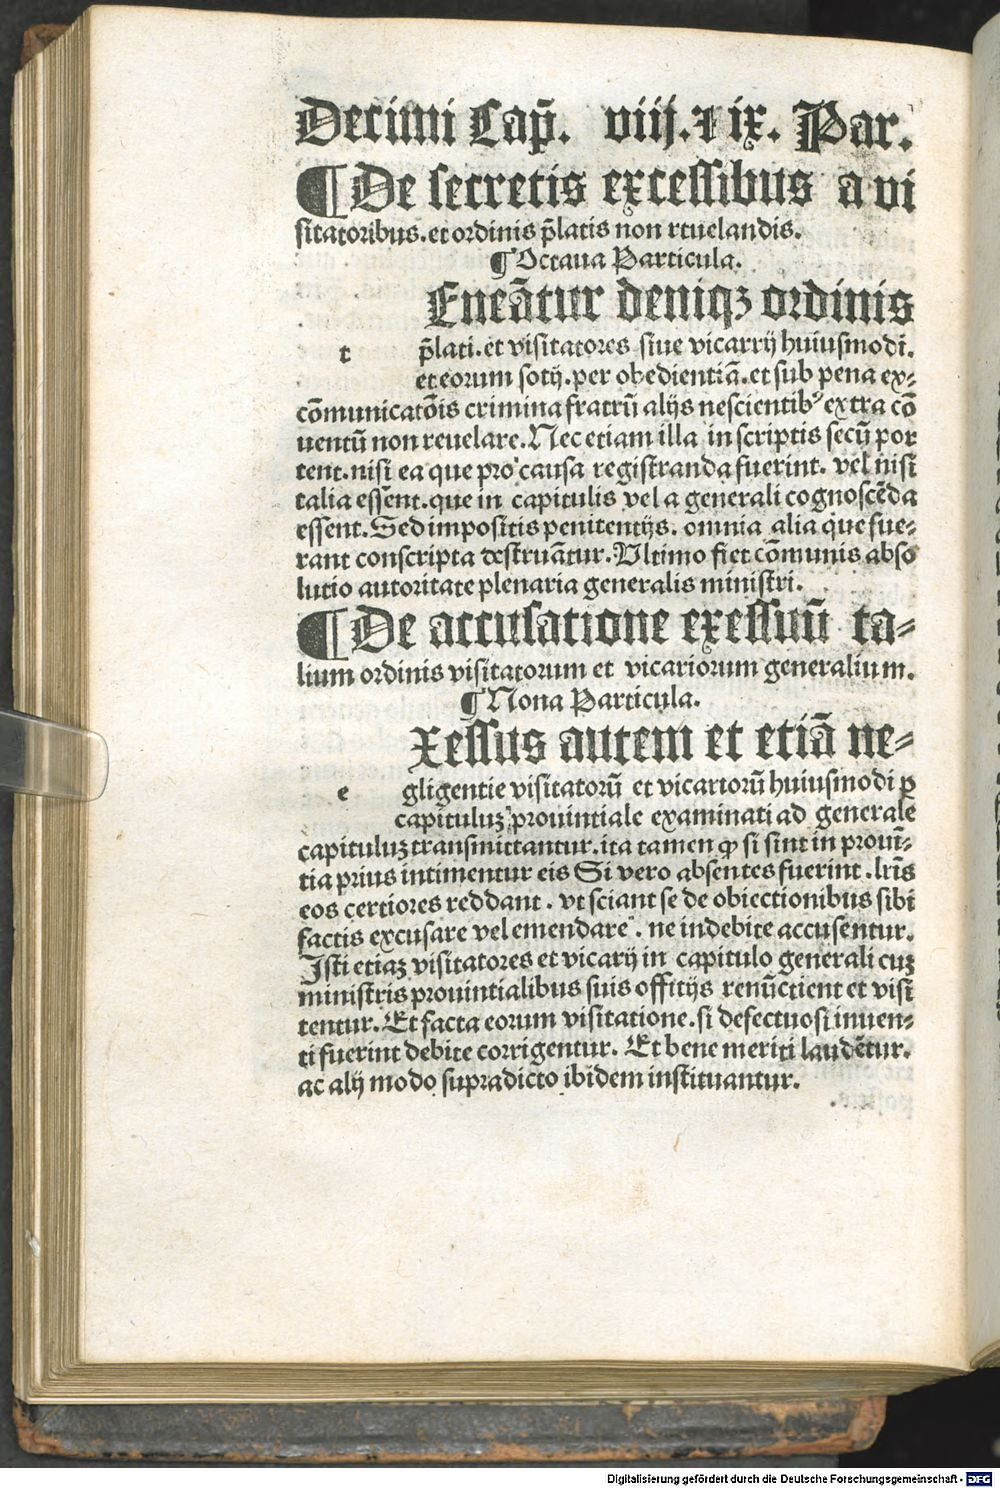 Decimi Cap̃. viij. ⁊ ix. Par.
¶ De secretis excessibus a vi
sitatoribus. et ordinis p̃latis non rtuelandis.
¶ Octaua Particula.
Eneãtur deniqꝫ ordinis
t p̃lati. et visitatores siue vicarrij huiusmodi.
et eorum sotij. per obedientiã. et sub pena ex⸗
cõmunicatõis crimina fratrũ alijs nescientibꝰ extra cõ
uentũ non reuelare. Nec etiam illa in scriptis secũ por
tent. nisi ea que pro causa registranda fuerint. vel nisi
talia essent. que in capitulis vel a generali cognoscẽda
essent. Sed impositis penitentijs. omnia alia que fue⸗
rant conscripta destruãtur. Vltimo fiet cõmunis abso
lutio autoritate plenaria generalis ministri.
¶ De accusatione exessuũ ta⸗
lium ordinis visitatorum et vicariorum generalium.
¶ Nona Particula.
Xessus autem et etiã ne⸗
e gligentie visitatorũ et vicariorũ huiusmodi ꝑ
capituluꝫ prouintiale examinati ad generale
capituluꝫ transmittantur. ita tamen ꝙ si sint in prouĩ⸗
tia prius intimentur eis Si vero absentes fuerint. lrĩs
eos certiores reddant. vt sciant se de obiectionibus sibi
factis excusare vel emendare. ne indebite accusentur.
Isti etiaꝫ visitatores et vicarij in capitulo generali cuꝫ
ministris prouintialibus suis offitijs renũctient et visi
tentur. Et facta eorum visitatione. si defectuosi inuen⸗
ti fuerint debite corrigentur. Et bene meriti laudẽtur.
ac alij modo supradicto ibidem instituantur.
Digitalisierung gefördert durch die Deutsche Forschungsgemeinschaft - DFG